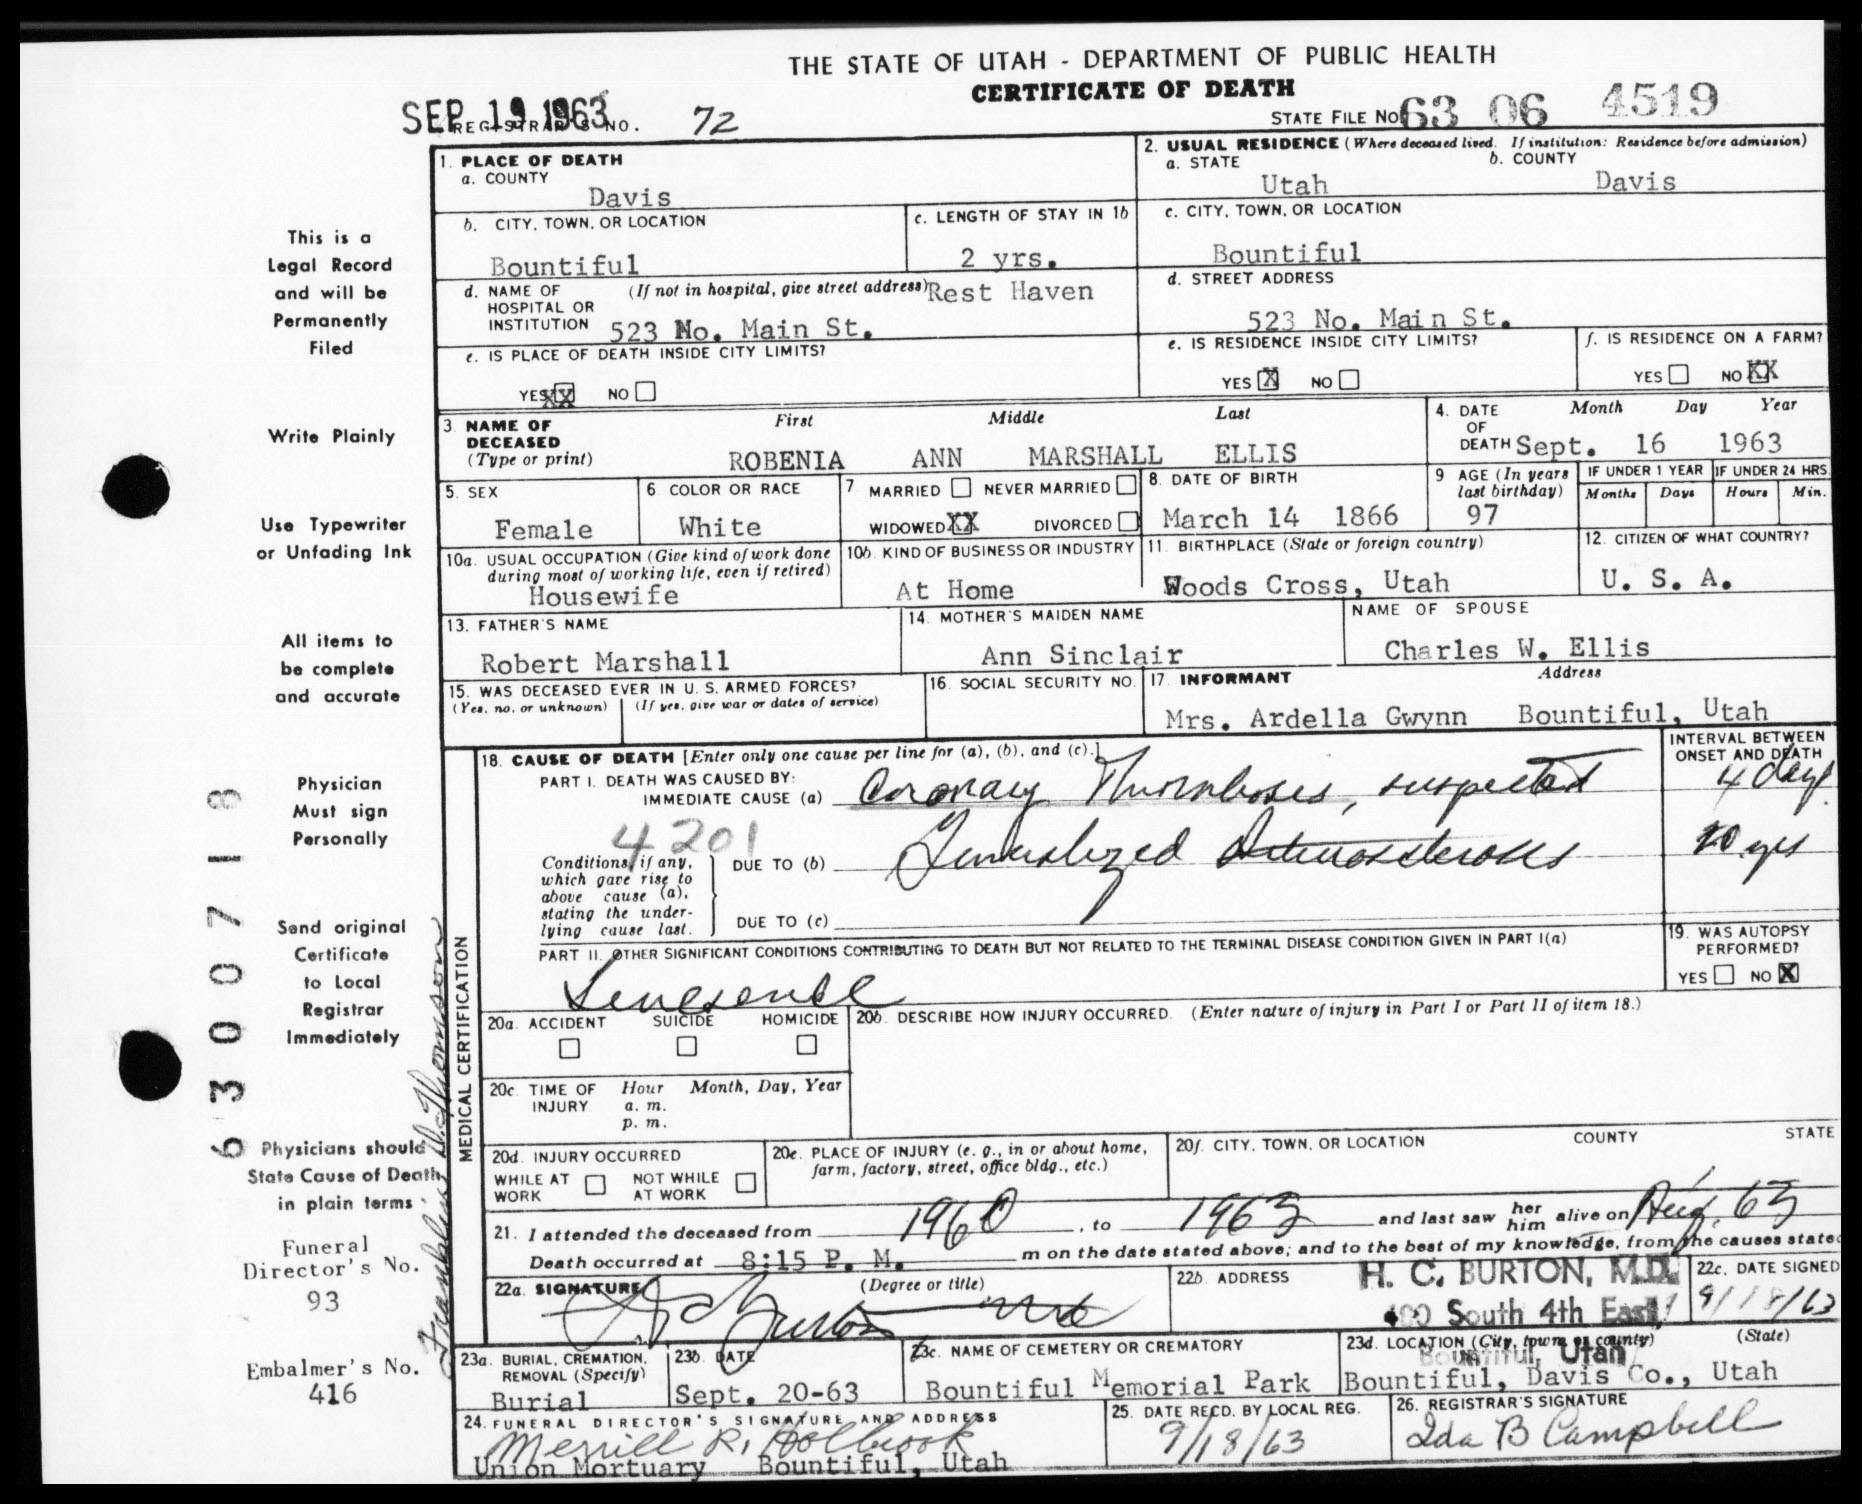 THE STATE OF UTAH - DEPARTMENT OF PUBLIC HEALTH
CERTIFICATE OF DEATH
SEP 19 1963
REGISTRAR'S NO. 72
STATE FILE NO. 63 06 4519
1. PLACE OF DEATH
a. COUNTY
Davis
2. USUAL RESIDENCE (Where deceased lived. If institution: Residence before admission)
a. STATE b. COUNTY
Utah Davis
b. CITY, TOWN, OR LOCATION
Bountiful
c. LENGTH OF STAY IN 1b
2 yrs.
c. CITY, TOWN, OR LOCATION
Bountiful
d. NAME OF HOSPITAL OR INSTITUTION (If not in hospital, give street address) Rest Haven
523 No. Main St.
d. STREET ADDRESS
523 No. Main St.
e. IS PLACE OF DEATH INSIDE CITY LIMITS?
YES XX NO
e. IS RESIDENCE INSIDE CITY LIMITS?
YES X NO
f. IS RESIDENCE ON A FARM?
YES NO XX
3. NAME OF DECEASED (Type or print)
First Middle Last
ROBENIA ANN MARSHALL ELLIS
4. DATE OF DEATH Month Day Year
Sept. 16 1963
5. SEX
Female
6 COLOR OR RACE
White
7 MARRIED NEVER MARRIED
WIDOWED XX DIVORCED
8. DATE OF BIRTH
March 14 1866
9 AGE (In years last birthday)
97
IF UNDER 1 YEAR IF UNDER 24 HRS.
Months Days Hours Min.
10a. USUAL OCCUPATION (Give kind of work done during most of working life, even if retired)
Housewife
10b. KIND OF BUSINESS OR INDUSTRY
At Home
11. BIRTHPLACE (State or foreign country)
Woods Cross, Utah
12. CITIZEN OF WHAT COUNTRY?
U. S. A.
13. FATHER'S NAME
Robert Marshall
14. MOTHER'S MAIDEN NAME
Ann Sinclair
NAME OF SPOUSE
Charles W. Ellis
15. WAS DECEASED EVER IN U. S. ARMED FORCES?
(Yes, no, or unknown) (If yes, give war or dates of service)
16. SOCIAL SECURITY NO.
17. INFORMANT Address
Mrs. Ardella Gwynn Bountiful, Utah
MEDICAL CERTIFICATION
18. CAUSE OF DEATH [Enter only one cause per line for (a), (b), and (c).]
INTERVAL BETWEEN ONSET AND DEATH
PART I. DEATH WAS CAUSED BY:
IMMEDIATE CAUSE (a) Coronary Thrombosis, suspected 4 days
4201
Conditions, if any, which gave rise to above cause (a), stating the underlying cause last.
DUE TO (b) Generalized Arteriosclerosis yrs
DUE TO (c)
PART II. OTHER SIGNIFICANT CONDITIONS CONTRIBUTING TO DEATH BUT NOT RELATED TO THE TERMINAL DISEASE CONDITION GIVEN IN PART I(a)
19. WAS AUTOPSY PERFORMED?
YES NO X
20a. ACCIDENT SUICIDE HOMICIDE
20b. DESCRIBE HOW INJURY OCCURRED. (Enter nature of injury in Part I or Part II of item 18.)
20c. TIME OF INJURY Hour Month, Day, Year
a. m.
p. m.
20d. INJURY OCCURRED
WHILE AT WORK NOT WHILE AT WORK
20e. PLACE OF INJURY (e. g., in or about home, farm, factory, street, office bldg., etc.)
20f. CITY, TOWN, OR LOCATION COUNTY STATE
21. I attended the deceased from 1960, to 1963 and last saw her him alive on Aug. 63
Death occurred at 8:15 P. M. m on the date stated above; and to the best of my knowledge, from the causes state
22a. SIGNATURE (Degree or title)
H C Burton MD
22b. ADDRESS
H. C. BURTON, M.D.
South 4th East,
Bountiful, Utah
22c. DATE SIGNED
9/18/63
23a. BURIAL, CREMATION, REMOVAL (Specify)
Burial
23b. DATE
Sept. 20-63
23c. NAME OF CEMETERY OR CREMATORY
Bountiful Memorial Park
23d. LOCATION (City, town or county) (State)
Bountiful, Davis Co., Utah
24. FUNERAL DIRECTOR'S SIGNATURE AND ADDRESS
Merrill R. Holbrook
Union Mortuary Bountiful, Utah
25. DATE RECD. BY LOCAL REG.
9/18/63
26. REGISTRAR'S SIGNATURE
Ida B Campbell
This is a
Legal Record
and will be
Permanently
Filed
Write Plainly
Use Typewriter
or Unfading Ink
All items to
be complete
and accurate
Physician
Must sign
Personally
Send original
Certificate
to Local
Registrar
Immediately
Physicians should
State Cause of Death
in plain terms
Funeral
Director's No.
93
Embalmer's No.
416
6300718
Franklin D. Thomson